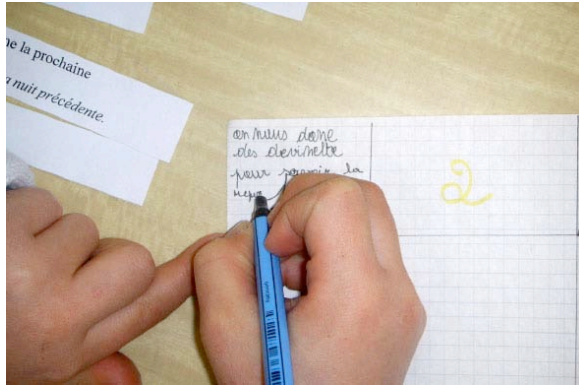 ne la prochaine
a nuit précédente.
on nous done
des devinette
pour pouvoir la
repo
2